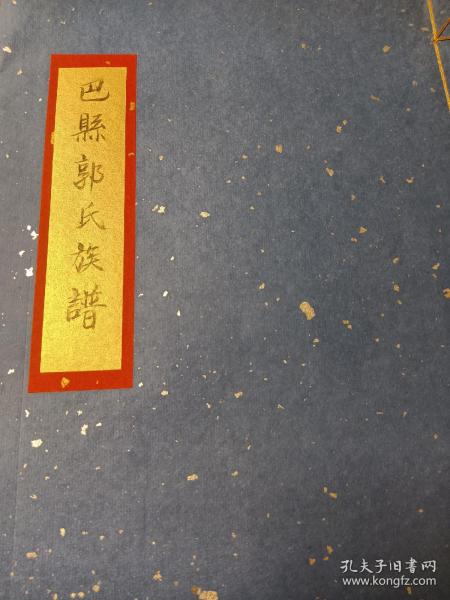 巴縣郭氏族譜
孔夫子旧书网
www.kongfz.com